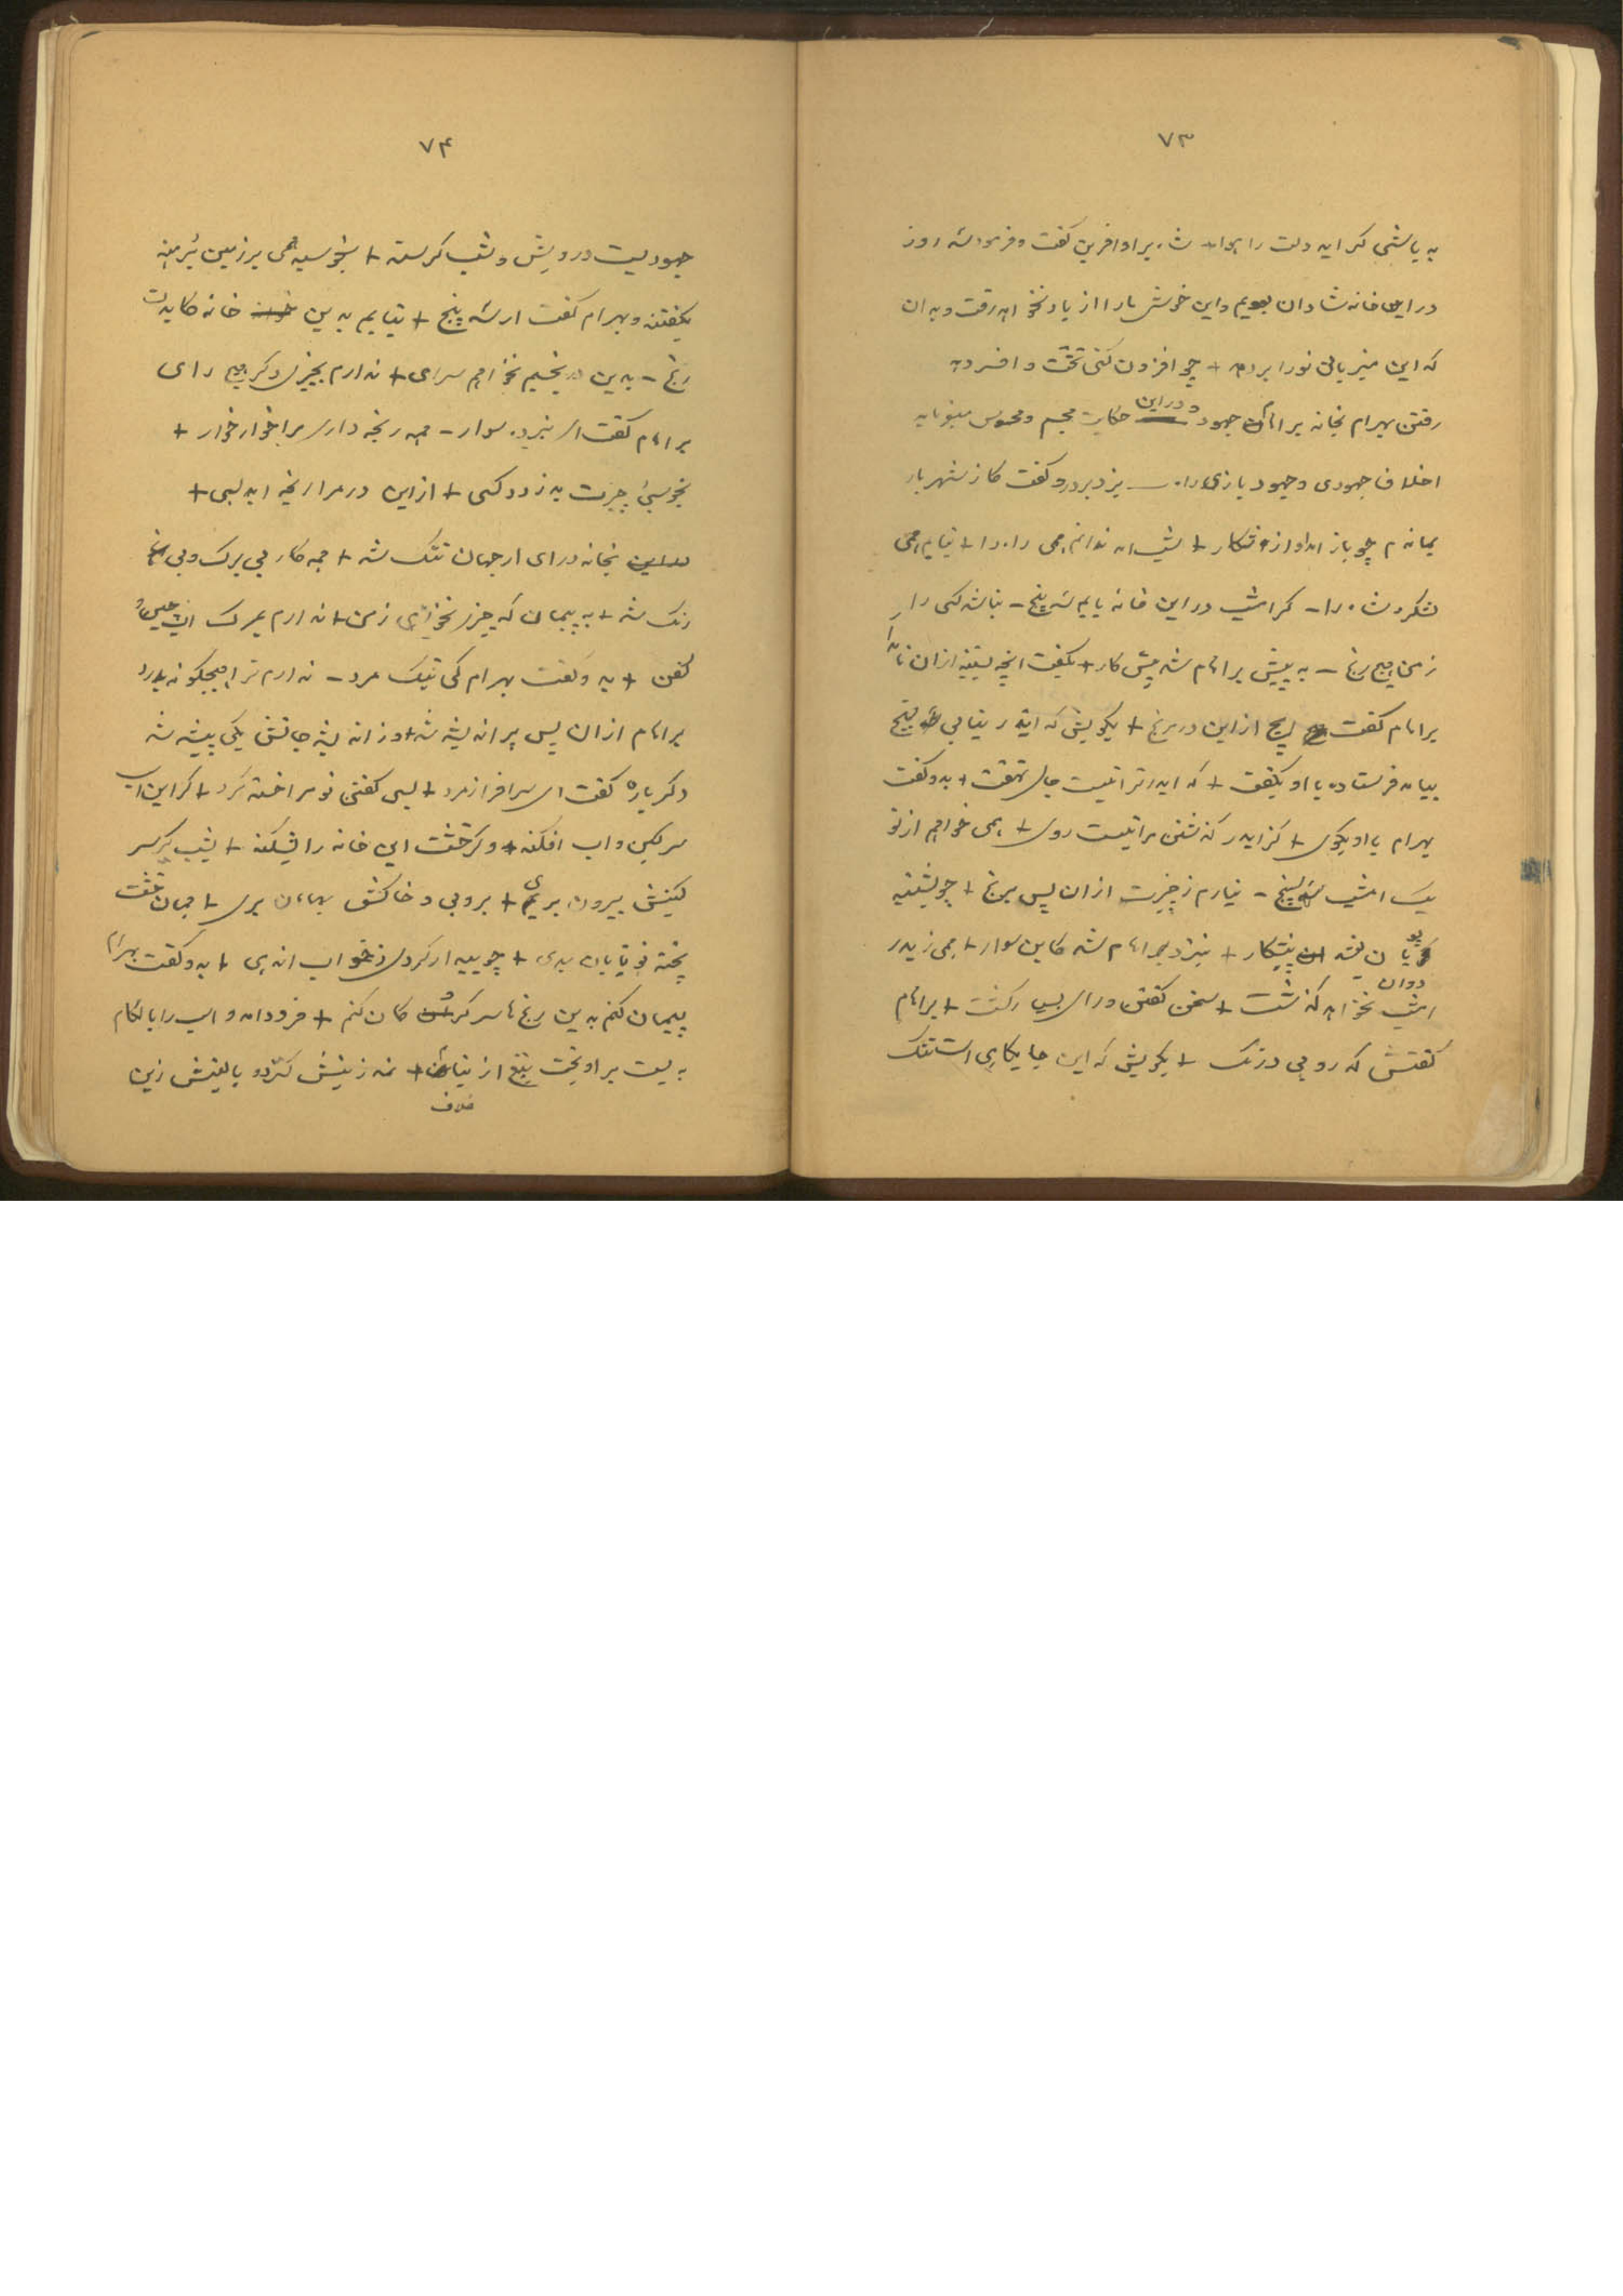 ۷۳
به باشی گر اید دلت را هوا + شاه بر او افرین گفت و فرمود سه روز
در این خانه شادان بویم و این خوش مارا از یاد نخواهد رفت و بدان
که این میزبانی تورا بر دهد + چو افزون کنی تخت و افسر دهد
رفتن بهرام بخانه براهام جهود و در این حکایت مجسم و محسوس مینماید
اخلاق جهودی و جهود بازی را. بزد بر در و گفت کاز شهریار
بماندم چو باز امد او از شکار + شب امد ندانم همی راه را + نیابم همی
لشکر و شاه را - گر امشب در این خانه یابم سپنج - نباشد کسی را
ز من هیچ رنج - به پیش براهام شد پیش کار + بگفت انچه بشنید از ان نامدار
براهام گفت ایچ از این در مرنج + بگویش که ایدر نیابی سپنج
بیامد فرستاده با او بگفت + که ایدر ترا نیست جای نهفت + بدو گفت
بهرام با او بگوی + کز ایدر گذشتن مرا نیست روی + همی خواهم از تو
یک امشب سپنج - نیارم ز چیزت از ان پس برنج + چو بشنید
پویان بشد پیشکار + بنزد براهام شد کاین سوار + همی ز ایدر
امشب نخواهد گذشت + سخن گفتن و رای بس گشت + براهام
گفتش که رو بی درنگ + بگویش که این جایگاهی است تنگ
۷۴
جهودیست درویش و شب گرسنه + بخوسبد همی بر زمین برهنه
بگفتند و بهرام گفت ار سپنج + نیابم بدین خانه کایدت
رنج - بدین در بخسبم نخواهم سرای + ندارم بچیزی دگر هیچ رای
براهام گفت ای نبرده سوار - همی رنجه داری مرا خوار خوار +
بخوسبی چیزت بدزدد کسی + از این در مرا رنجه اید بسی +
بخانه درای ار جهان تنگ شد + همه کار بی برگ و بی
رنگ شد + به پیمان که چیزی نخواهی ز من + ندارم بمرگ
کفن + بدو گفت بهرام کی نیک مرد - ندارم ترا هیچگونه بدرد
براهام از ان پس پر اندیشه شد + وز اندیشه جانش یکی بیشه شد
دگر باره گفت ای سرافراز مرد + بسی گفتن تو مرا خسته کرد + گر این اسپ
سرگین و اب افکند + وگر خشت این خانه را بشکند + بشب سر
گینش بیرون بری + بروبی و خاکش بهامون بری + همان خشت
پخته تو تاوان بدی + چو بیدار گردی ز خواب اندهی + بدو گفت بهرام
پیمان کنم بدین رنج ها سر گروگان کنم + فرود امد و اسپ را با لگام
ببست بر اویخت تیغ از نیام + نمد زینش گسترد و بالینش زین
غلاف